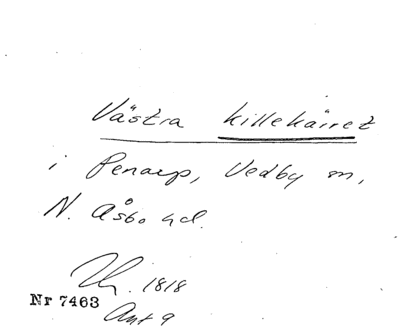 Västra killekärret
i Penarp, Vedby sn,
N. Åsbo hd.
1818
Nr 7463
Akt 9